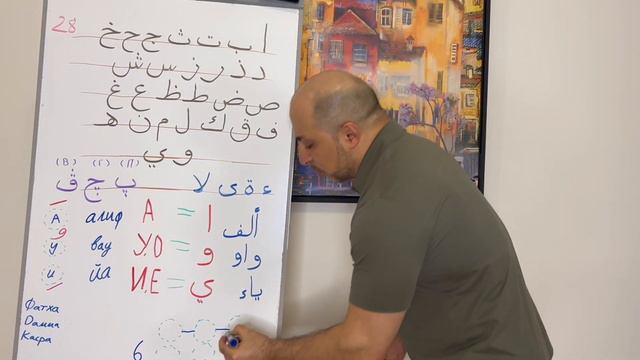 28
ا ب ت ث ج ح خ
د ذ ر ز س ش
ص ض ط ظ ع غ
ف ق ك ل م ن ه
و ي
(В) (Г) (П)
ء ة ى لا پ چ ڤ
ألف ا = А алиф А
واو و = У.О вау У
ياء ي = И,Е йа И
Фатха
Дамма
Касра
6